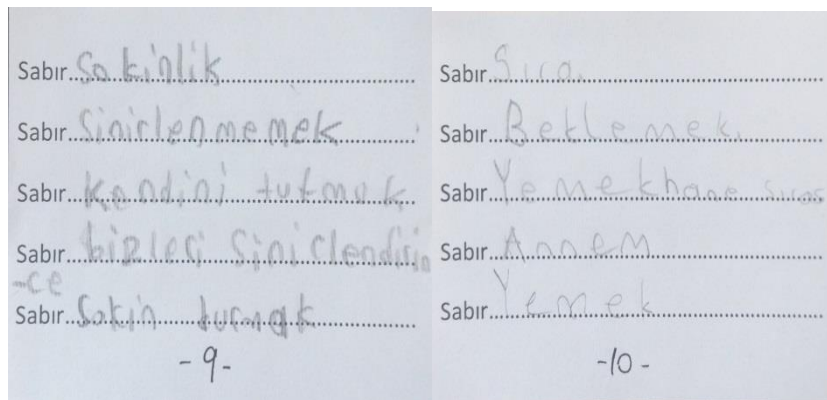 Sabır...Sakinlik
Sabır...Sinirlenmemek
Sabır...Kendini tutmak
Sabır...birileri sinirlendirin
-ce
Sabır...Sakin durmak
-9-
Sabır...Sıra.
Sabır...Beklemek.
Sabır...Yemekhane sırası
Sabır...Annem
Sabır...Yemek
-10-